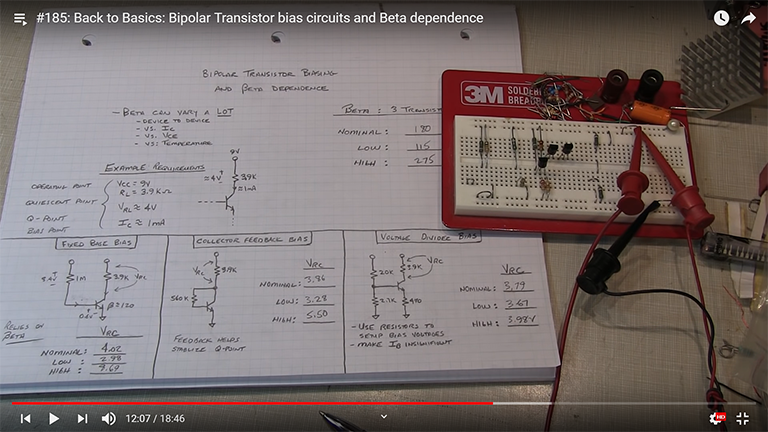 #185: Back to Basics: Bipolar Transistor bias circuits and Beta dependence
BIPOLAR TRANSISTOR BIASING
AND BETA DEPENDENCE
- BETA CAN VARY A LOT
- DEVICE TO DEVICE
- VS. IC
- VS. VCE
- VS. TEMPERATURE
BETA: 3 TRANSIST
NOMINAL: 180
LOW: 115
HIGH: 275
3M SOLDERL
BREADB
EXAMPLE REQUIREMENTS
OPERATING POINT
QUIESCENT POINT
Q-POINT
BIAS POINT
VCC = 9V
RL = 3.9KΩ
VRL ≈ 4V
IC ≈ 1mA
9V
≈4V
3.9K
≈1mA
FIXED BASE BIAS
1M
3.9K
VRC
β≈120
RELIES ON
BETA
VRC
NOMINAL: 4.02
LOW: 2.98
HIGH:
COLLECTOR FEEDBACK BIAS
VRC
3.9K
560K
VRC
NOMINAL: 3.86
LOW: 3.28
HIGH: 5.50
FEEDBACK HELPS
STABILIZE Q-POINT
VOLTAGE DIVIDER BIAS
20K
3.9K
VRC
470
VRC
NOMINAL: 3.79
LOW: 3.67
HIGH: 3.98V
- USE RESISTORS TO
SETUP BIAS VOLTAGES
- MAKE IB INSIGNIFICANT
12:07 / 18:46
HD